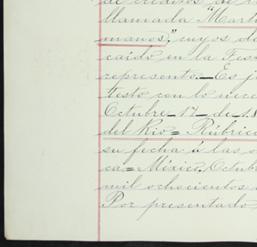 de creditos de la
llamada "Mart
manos," cuyos de
caido en la Fis
represento.— Es j
testo con lo nece
Octubre 17 de 18
del Rio= Rúbric
su fecha á las o
ca= México, Octub
mil ochocientos
Por presentado,